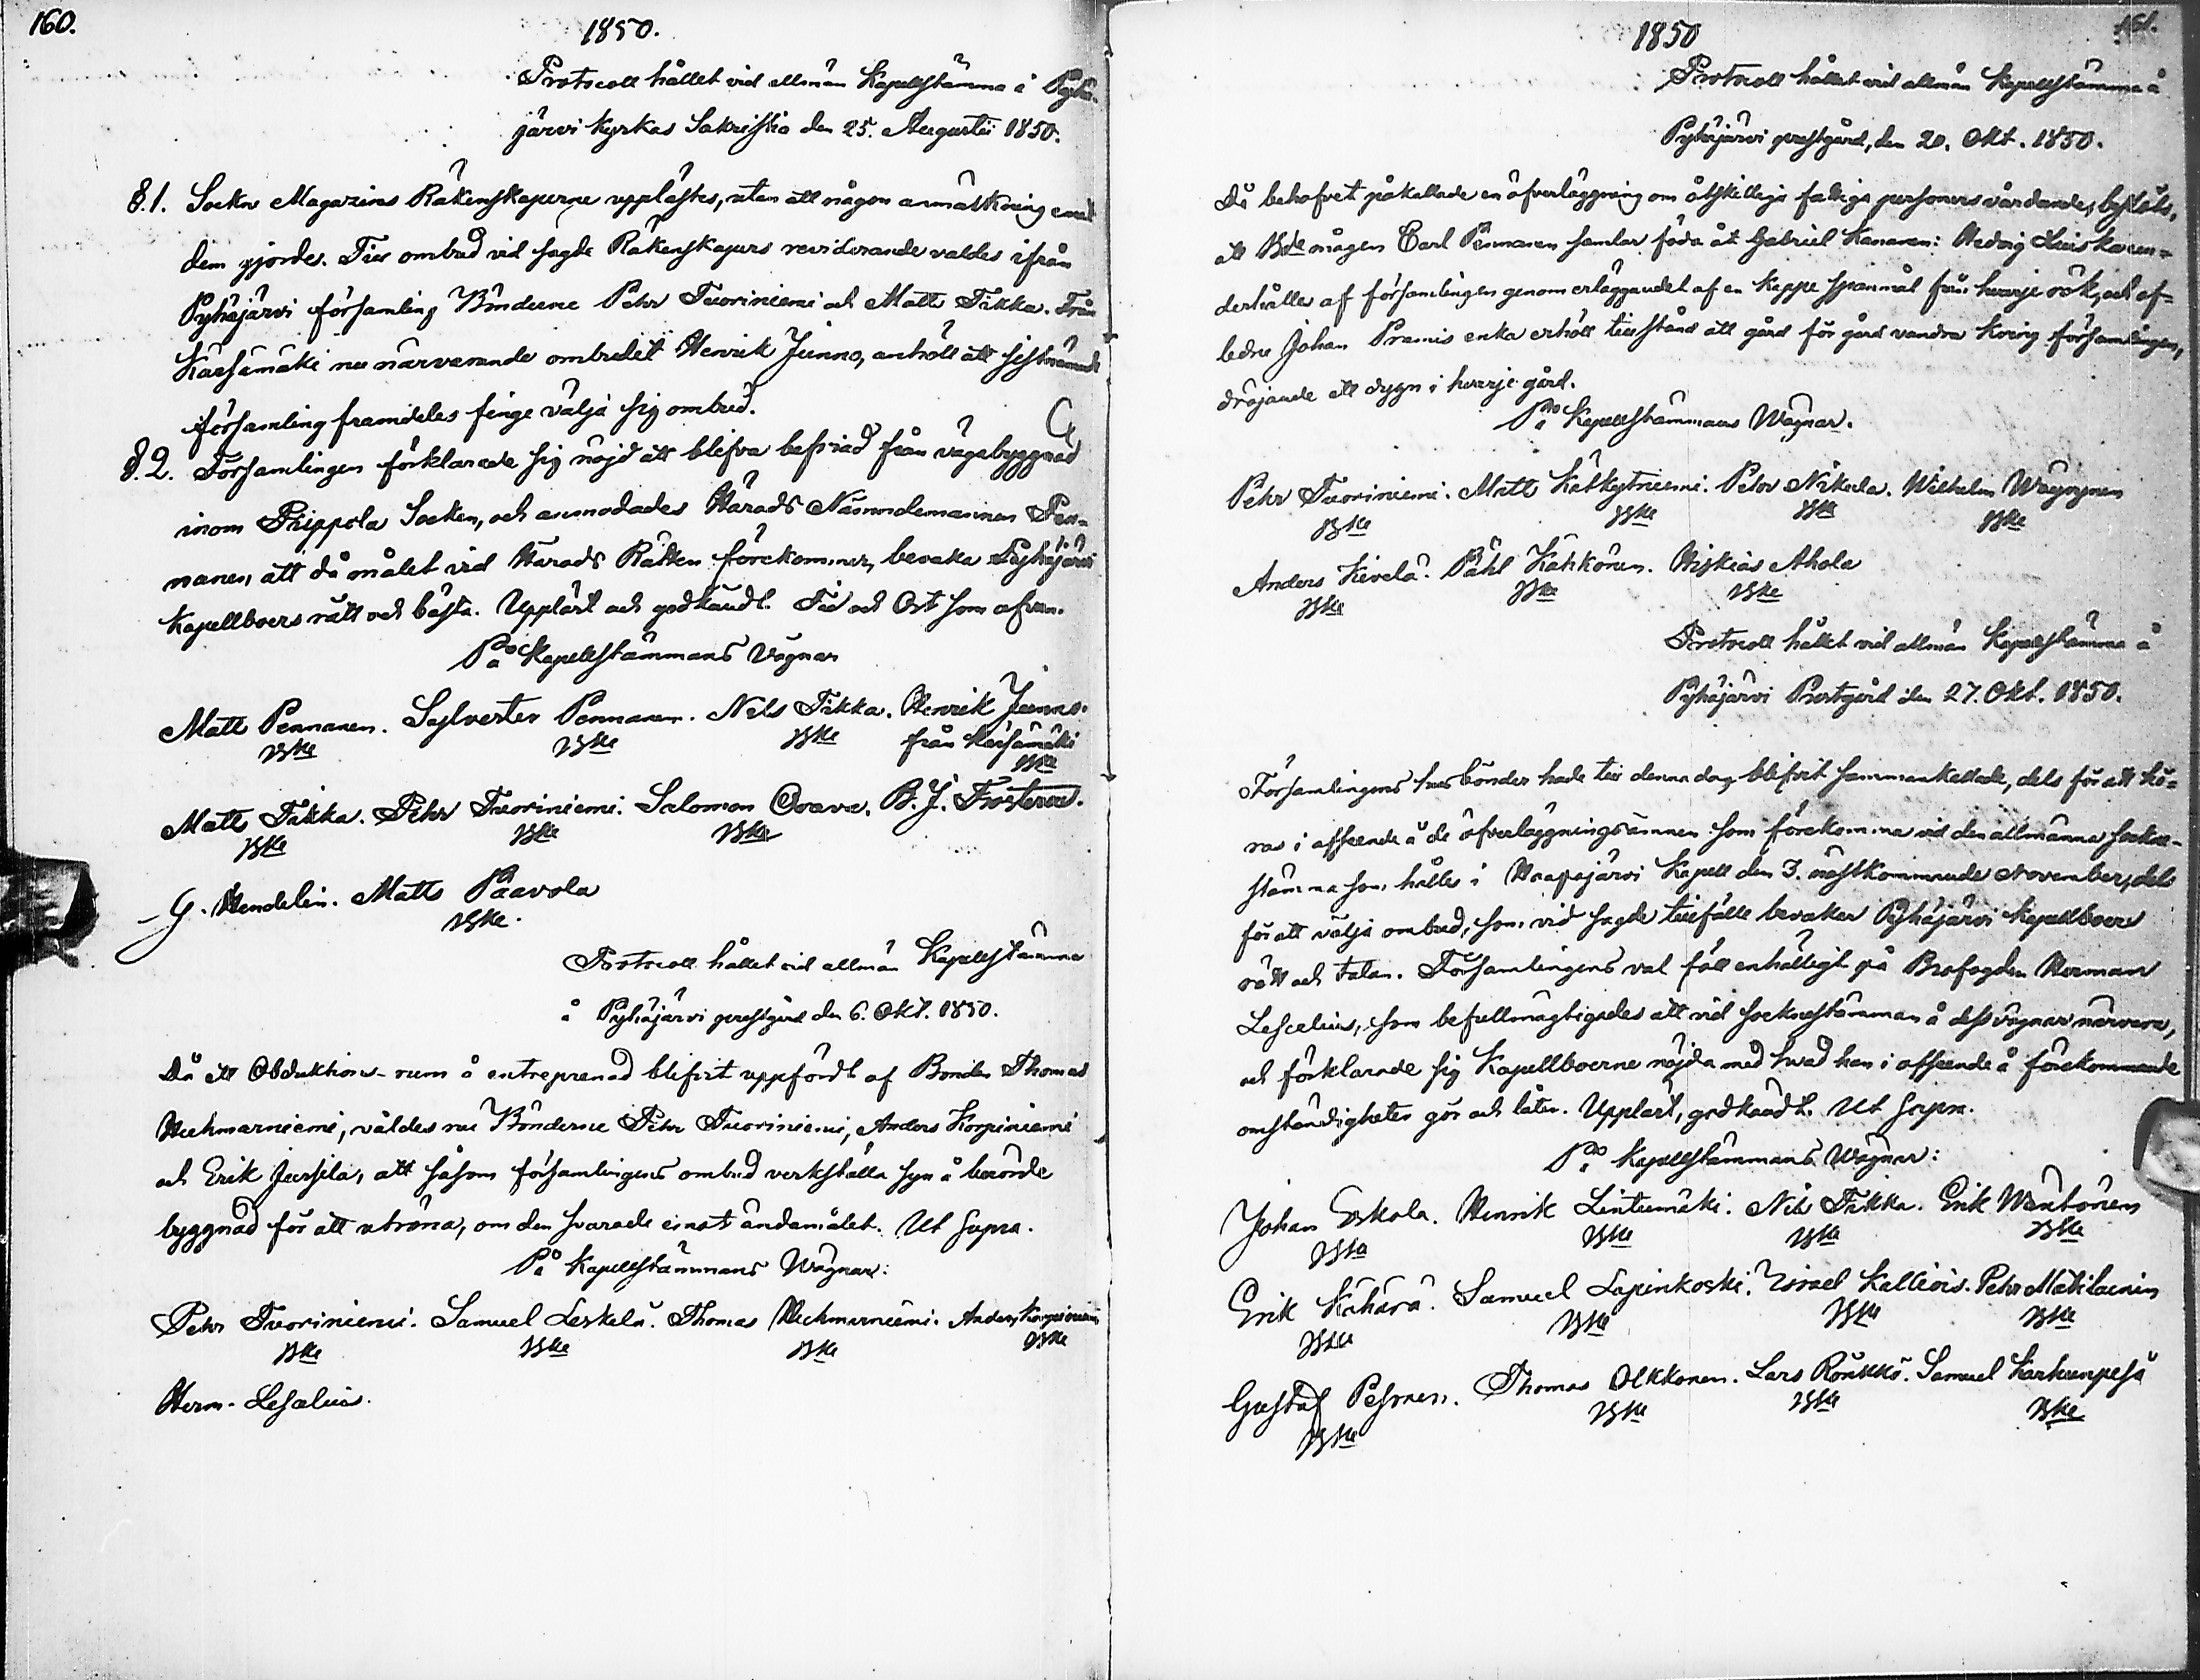 160.
1850.
Protocoll hållet vid allmän Kapellstämma i Pyhä-
järvi Kyrkas Sakristia den 25. Augusti 1850.
§.1. Sockne Magazins Räkenskaperne upplästes, utan att någon anmärkning emot
dem gjordes. Till ombud vid sagde Räkenskapers reviderande valdes ifrån
Pyhäjärvi församling Bönderne Pehr Tuoriniemi och Matts Tikka. Från
Kärsämäki nu närvarande ombudet Henrik Junno, anhöll att sistnämnde
församling framdeles finge välja sig ombud.
§.2. Församlingen förklarade sig nöjd att blifva befriad från vägabyggnad
inom Phippola Socken, och anmodades Härads Nämndemannen Pen-
nanen, att då målet vid Härads Rätten förekommer, bevaka Pyhäjärvi
Kapellboers rätt och bästa. Uppläst och godkändt. Tid och Ort som ofvan.
På Kapellstämmans Vägnar
Matts Pennanen. Sylvester Pennanen. Nils Tikka. Henrik Junno.
från Kärsämäki
Matts Tikka. Pehr Tuoriniemi. Salomon Oravo. B. J. Frosterus.
G. Hendelin. Matts Paavola
Protocoll hållet vid allmän Kapellstämma
å Pyhäjärvi prestgård den 6. Okt. 1850.
Då ett Obduktions-rum å entreprenad blifvit uppfördt af Bonden Thomas
Heckmarniemi, valdes nu Bönderne Pehr Tuoriniemi, Anders Korpiniemi
och Erik Jussila, att såsom församlingens ombud verkställa syn å berörde
byggnad för att utröna, om den svarade emot ändamålet. Ut Supra.
På Kapellstämmans Wägnar:
Pehr Tuoriniemi. Samuel Leskelä. Thomas Heckmarniemi. Anders Korpiniemi
Herm. Lescelius.
161.
1850
Protocoll hållet vid allmän Kapellstämma å
Pyhäjärvi prestgård, den 20. Okt. 1850.
Då behofvet påkallade en öfverläggning om åtskilliga fattiga personers vårdande, beslöts,
att mågen Carl Pennanen samlar föda åt Gabriel Kananen: Hedvig un-
derhålles af församlingen genom erläggandet af en Kappe spanmål från hvarje rök, och af-
ledne Johan enka erhöll tillstånd att gård för gård vandra kring församlingen,
dröjande ett dygn i hvarje gård.
På Kapellstämmans Wägnar.
Pehr Tuoriniemi. Matts Kätkytniemi. Petter Nikula. Wilhelm Wäyrynen
Anders Kivelä. Påhl Kähkönen. Hiskias Ahola
Protocoll hållet vid allmän Kapellstämma å
Pyhäjärvi Prestgård den 27. Okt. 1850.
Församlingens husbönder hade till denna dag blifvit sammankallade, dels för att hö-
ras i afseende å de öfverläggningsämnen som förekomma vid den allmänna sockne-
stämma som hålles i Haapajärvi Kapell den 3. nästkommande November, dels
för att välja ombud, som vid sagde tillfälle bevakar Pyhäjärvi Kapellboers
rätt och talan. Församlingens val föll enhälligt på Brofogden Herman
Lescelius, som befullmägtigades att vid sockenstämman å dess vägnar närvara,
och förklarade sig Kapellboerne nöjda med hvad han i afseende å förekommande
omständigheter gör och låter. Uppläst, godkändt. Ut Supra.
På Kapellstämmans Wägnar:
Johan Eskola. Henrik Lintumäki. Nils Tikka. Erik Wentonen
Erik Kähärä. Samuel Lapinkoski. Israel Kalliois. Pehr Mäkilainen
Gustaf Pesonen. Thomas Olkkonen. Lars Rönkkö. Samuel Karhunpesä